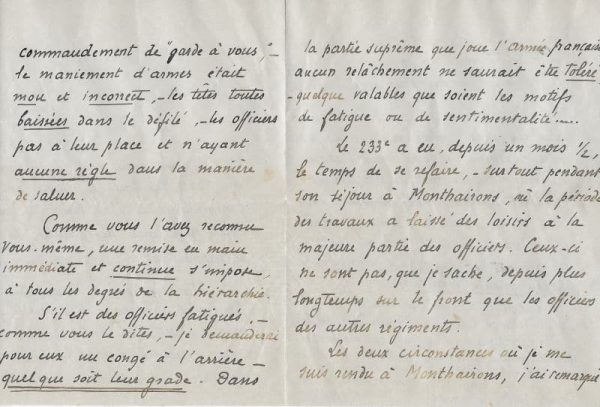 commandement de "garde à vous", –
le maniement d'armes était
mou et incorrect, – les têtes toutes
baissées dans le défilé, – les officiers
pas à leur place et n'ayant
aucune règle dans la manière
de saluer.
Comme vous l'avez reconnu
vous-même, une remise en main
immédiate et continue s'impose,
à tous les degrés de la hiérarchie.
S'il est des officiers fatigués, –
comme vous le dites, – je demanderai
pour eux un congé à l'arrière –
quel que soit leur grade. Dans
la partie suprême que joue l'armée française
aucun relâchement ne saurait être toléré
– quelque valables que soient les motifs
de fatigue ou de sentimentalité....
Le 233e a eu, depuis un mois 1/2,
le temps de se refaire, – surtout pendant
son séjour à Monthairons, où la période
des travaux a laissé des loisirs à la
majeure partie des officiers. Ceux-ci
ne sont pas, que je sache, depuis plus
longtemps sur le front que les officiers
des autres régiments.
Les deux circonstances où je me
suis rendu à Monthairons, j'ai remarqué